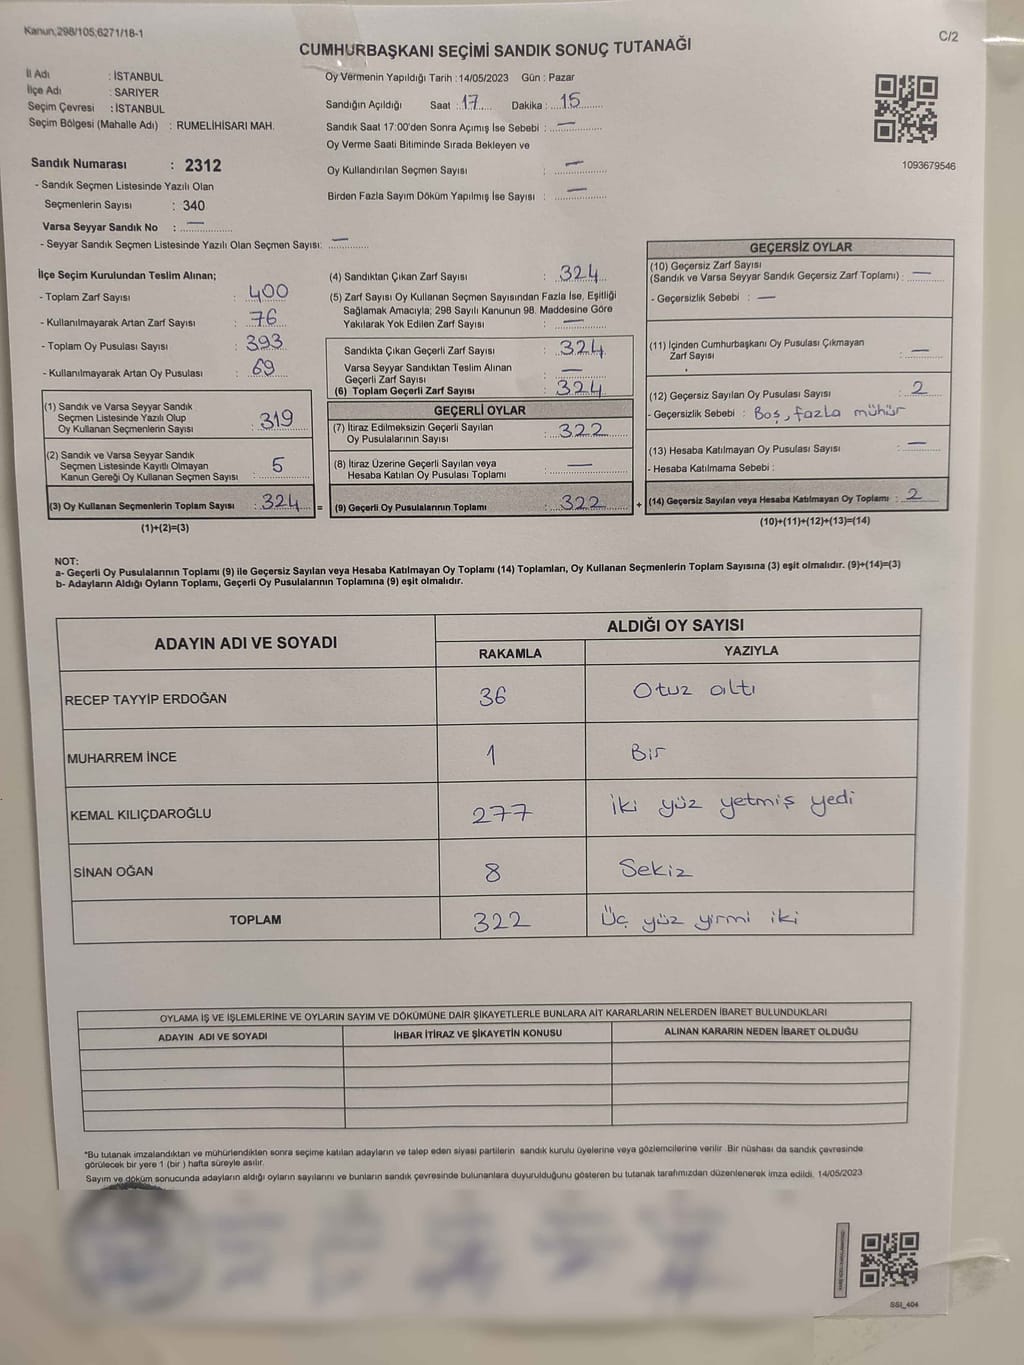 Kanun,298/105,6271/18-1
C/2
CUMHURBAŞKANI SEÇİMİ SANDIK SONUÇ TUTANAĞI
İl Adı : İSTANBUL
İlçe Adı : SARIYER
Seçim Çevresi : İSTANBUL
Seçim Bölgesi (Mahalle Adı) : RUMELİHİSARI MAH.
Oy Vermenin Yapıldığı Tarih :14/05/2023 Gün : Pazar
Sandığın Açıldığı Saat : 17 Dakika : 15
Sandık Saat 17:00'den Sonra Açımış İse Sebebi : —
Oy Verme Saati Bitiminde Sırada Bekleyen ve
Oy Kullandırılan Seçmen Sayısı : —
Birden Fazla Sayım Döküm Yapılmış İse Sayısı : —
1093679546
Sandık Numarası : 2312
- Sandık Seçmen Listesinde Yazılı Olan
Seçmenlerin Sayısı : 340
Varsa Seyyar Sandık No : —
- Seyyar Sandık Seçmen Listesinde Yazılı Olan Seçmen Sayısı: —
İlçe Seçim Kurulundan Teslim Alınan;
- Toplam Zarf Sayısı : 400
- Kullanılmayarak Artan Zarf Sayısı : 76
- Toplam Oy Pusulası Sayısı : 393
- Kullanılmayarak Artan Oy Pusulası : 69
(1) Sandık ve Varsa Seyyar Sandık
Seçmen Listesinde Yazılı Olup
Oy Kullanan Seçmenlerin Sayısı : 319
(2) Sandık ve Varsa Seyyar Sandık
Seçmen Listesinde Kayıtlı Olmayan
Kanun Gereği Oy Kullanan Seçmen Sayısı : 5
(3) Oy Kullanan Seçmenlerin Toplam Sayısı : 324 =
(1)+(2)=(3)
(4) Sandıktan Çıkan Zarf Sayısı : 324
(5) Zarf Sayısı Oy Kullanan Seçmen Sayısından Fazla İse, Eşitliği
Sağlamak Amacıyla; 298 Sayılı Kanunun 98. Maddesine Göre
Yakılarak Yok Edilen Zarf Sayısı : —
Sandıkta Çıkan Geçerli Zarf Sayısı : 324
Varsa Seyyar Sandıktan Teslim Alınan
Geçerli Zarf Sayısı : —
(6) Toplam Geçerli Zarf Sayısı : 324
GEÇERLİ OYLAR
(7) İtiraz Edilmeksizin Geçerli Sayılan
Oy Pusulalarının Sayısı : 322
(8) İtiraz Üzerine Geçerli Sayılan veya
Hesaba Katılan Oy Pusulası Toplamı : —
(9) Geçerli Oy Pusulalarının Toplamı : 322 +
GEÇERSİZ OYLAR
(10) Geçersiz Zarf Sayısı
(Sandık ve Varsa Seyyar Sandık Geçersiz Zarf Toplamı) : —
- Geçersizlik Sebebi : —
(11) İçinden Cumhurbaşkanı Oy Pusulası Çıkmayan
Zarf Sayısı : —
(12) Geçersiz Sayılan Oy Pusulası Sayısı : 2
- Geçersizlik Sebebi : Boş, fazla mühür
(13) Hesaba Katılmayan Oy Pusulası Sayısı : —
- Hesaba Katılmama Sebebi :
(14) Geçersiz Sayılan veya Hesaba Katılmayan Oy Toplamı : 2
(10)+(11)+(12)+(13)=(14)
NOT:
a- Geçerli Oy Pusulalarının Toplamı (9) ile Geçersiz Sayılan veya Hesaba Katılmayan Oy Toplamı (14) Toplamları, Oy Kullanan Seçmenlerin Toplam Sayısına (3) eşit olmalıdır. (9)+(14)=(3)
b- Adayların Aldığı Oyların Toplamı, Geçerli Oy Pusulalarının Toplamına (9) eşit olmalıdır.
ADAYIN ADI VE SOYADI ALDIĞI OY SAYISI
RAKAMLA YAZIYLA
RECEP TAYYİP ERDOĞAN 36 Otuz altı
MUHARREM İNCE 1 Bir
KEMAL KILIÇDAROĞLU 277 İki yüz yetmiş yedi
SİNAN OĞAN 8 Sekiz
TOPLAM 322 Üç yüz yirmi iki
OYLAMA İŞ VE İŞLEMLERİNE VE OYLARIN SAYIM VE DÖKÜMÜNE DAİR ŞİKAYETLERLE BUNLARA AİT KARARLARIN NELERDEN İBARET BULUNDUKLARI
ADAYIN ADI VE SOYADI İHBAR İTİRAZ VE ŞİKAYETİN KONUSU ALINAN KARARIN NEDEN İBARET OLDUĞU
*Bu tutanak imzalandıktan ve mühürlendikten sonra seçime katılan adayların ve talep eden siyasi partilerin sandık kurulu üyelerine veya gözlemcilerine verilir. Bir nüshası da sandık çevresinde
görülecek bir yere 1 (bir ) hafta süreyle asılır.
Sayım ve döküm sonucunda adayların aldığı oyların sayılarını ve bunların sandık çevresinde bulunanlara duyurulduğunu gösteren bu tutanak tarafımızdan düzenlenerek imza edildi. 14/05/2023
SSI_404